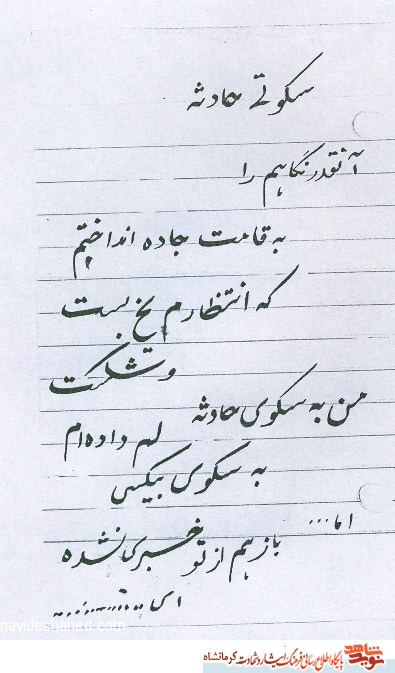 سکوتے حادثه
آنقدر نگاهم را
به قامت جاده انداختم
که انتظارم یخ بست
و شکست
من به سکوی حادثه
لم داده ام
به سکوی بیکسی
اما ...
باز هم از تو خبری نشده
ای ..........
navideshahed.com
نوید شاهد پایگاه اطلاع رسانی فرهنگ ایثار و شهادت کرمانشاه